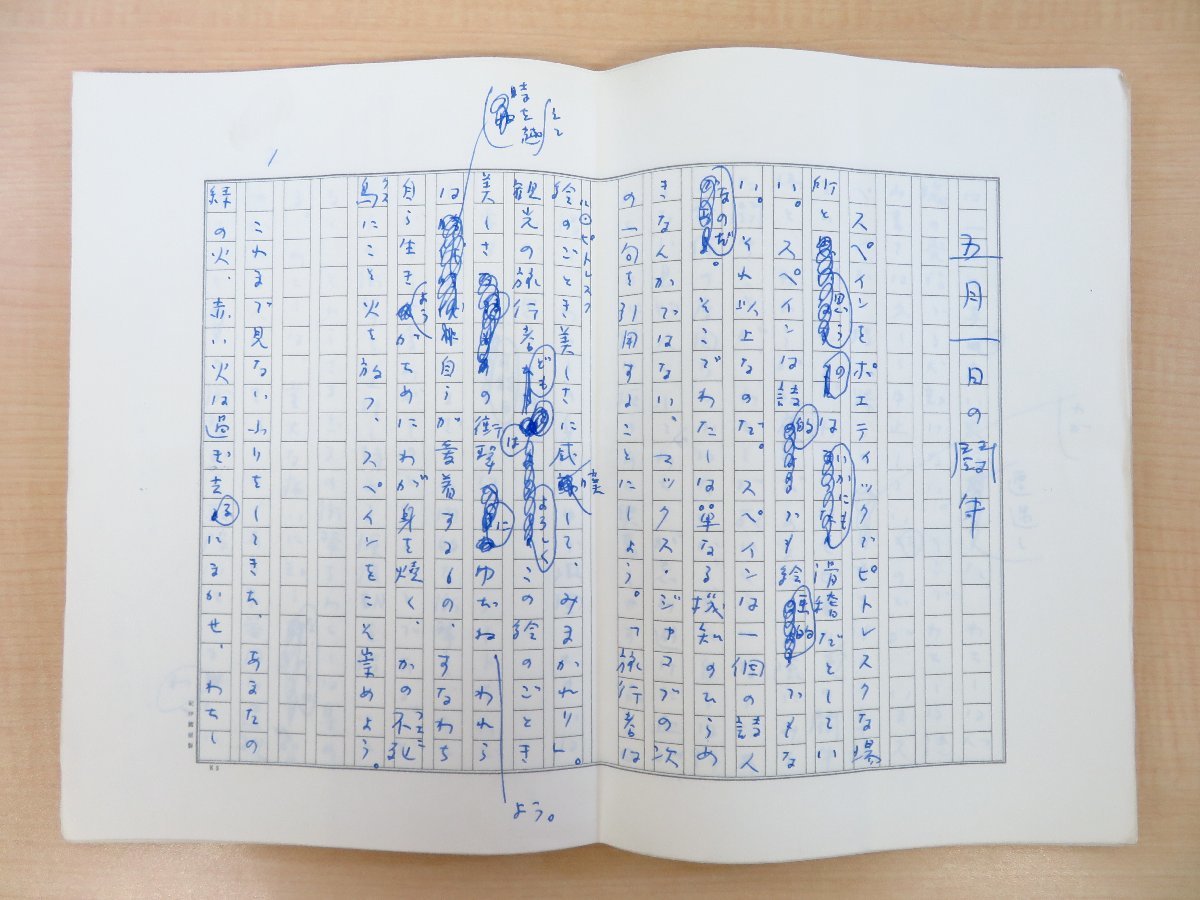 五月一日の闘牛
スペインをポエティックでピトレスクな場
所と思うのはいかにも滑稽だとしてい
い。スペインは詩的でも絵画的でもな
い。それ以上なのだ。スペインは一個の詩人
なのだ。そこでわたしは単なる機知のひらめ
きなんかではない、マックス・ジャコブの次
の一句を引用することにしよう。「旅行者は
絵のごとき美しさに感嘆して、みまかれり」。
ピトレスク
観光の旅行者どもはよろしくこの絵のごとき
美しさの衝撃にゆだねよう。われら
は時を越えて自らが愛着するもの、すなわち
自ら生きようがためにわが身を焼く、かの不死
鳥にこそ火を放つ、スペインをこそ崇めよう。
これまで見ないふりをしてきた、あまたの
緑の火、赤い火は過ぎ去るにまかせ、わたし